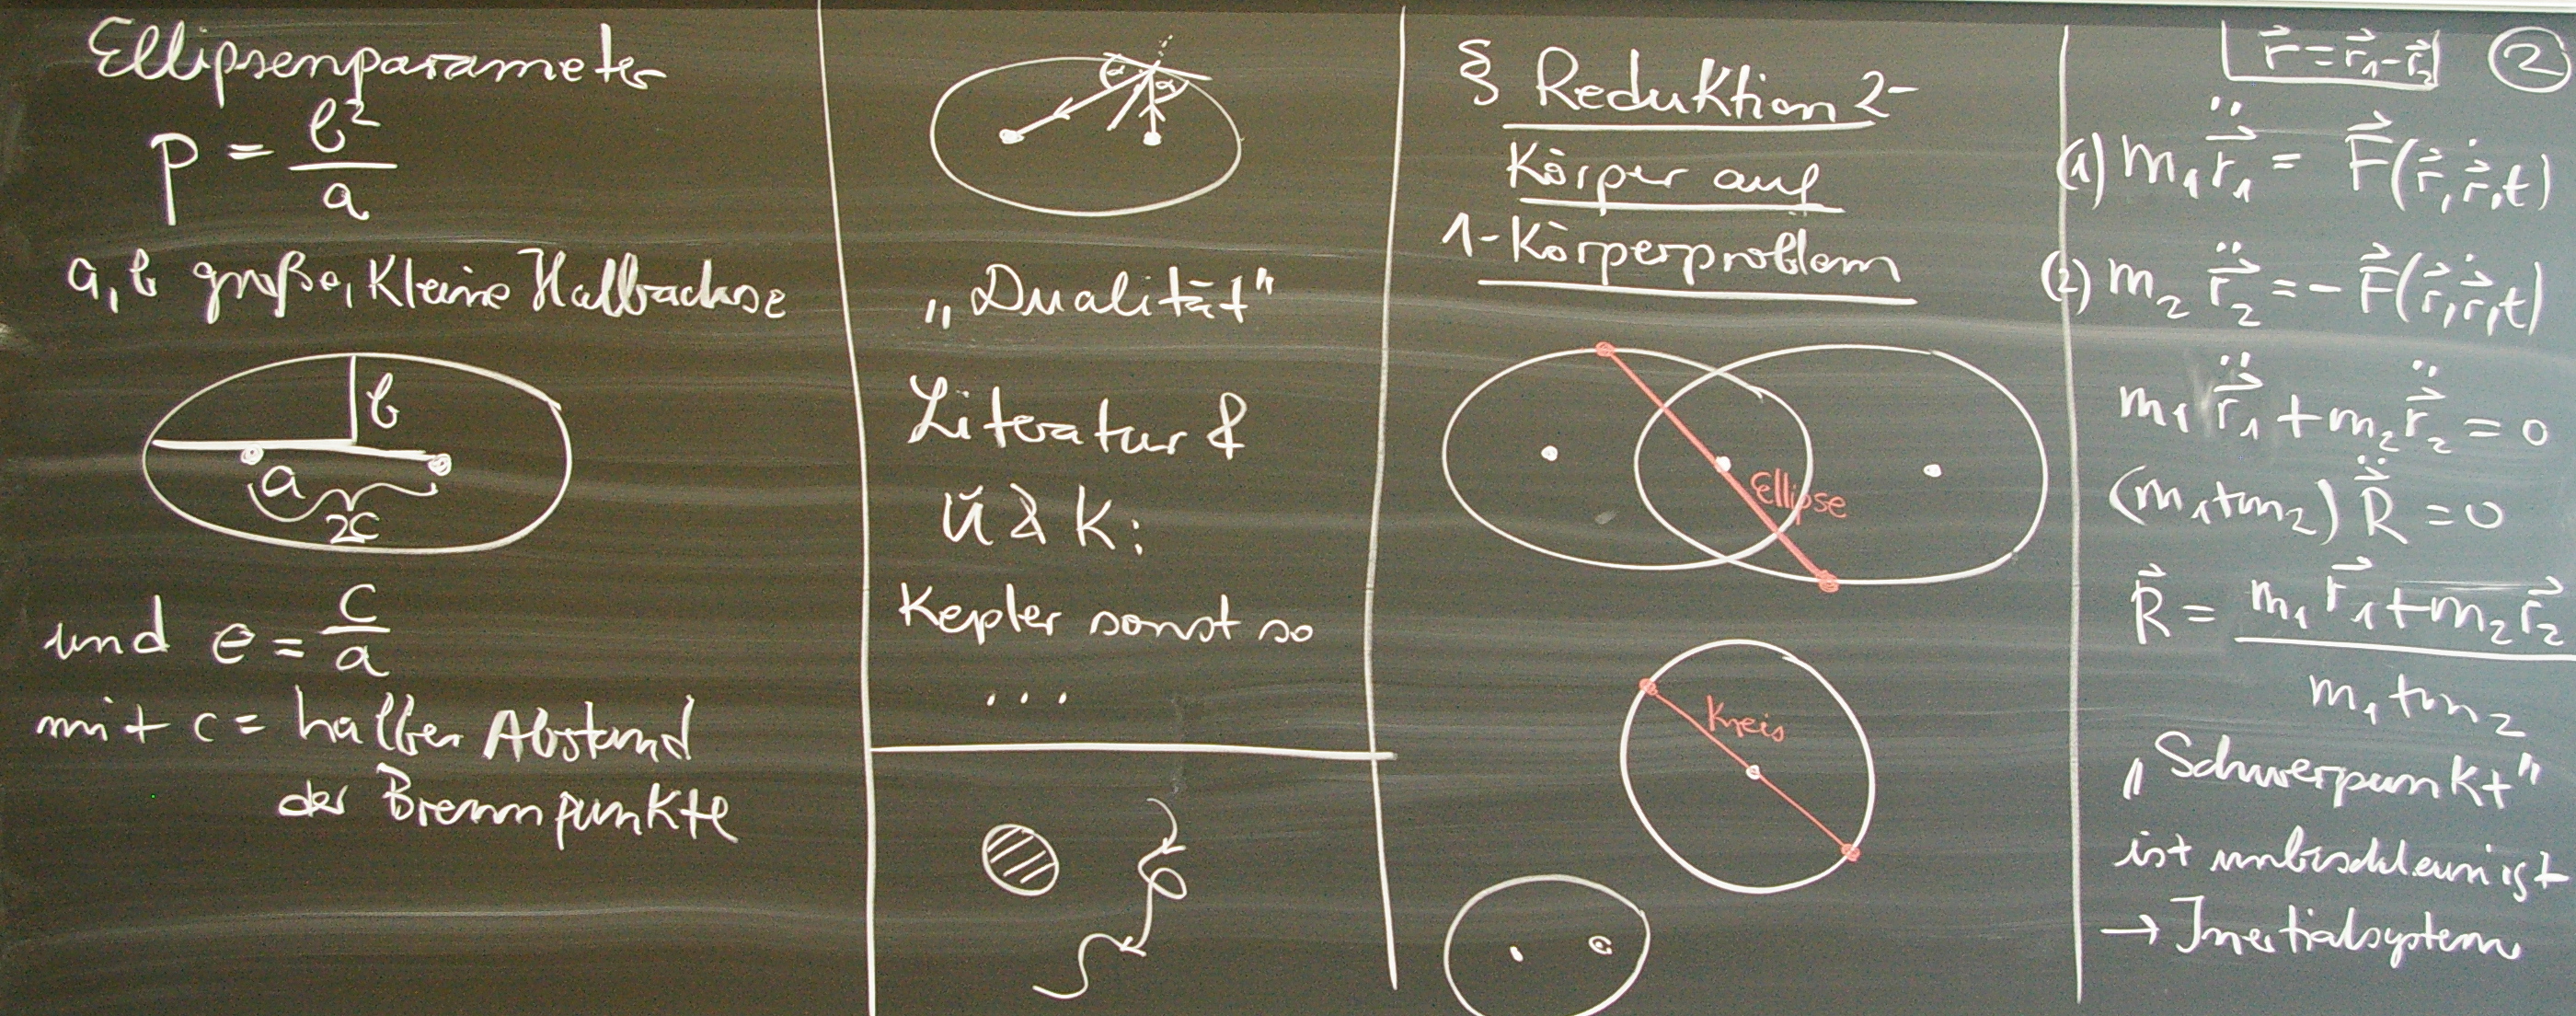 Ellipsenparameter
p = b²/a
a, b große, kleine Halbachse
b
a
2c
und e = c/a
mit c = halber Abstand
der Brennpunkte
α α
„Dualität"
Literatur &
Ü & K:
Kepler sonst so
...
§ Reduktion 2-
Körper auf
1-Körperproblem
Ellipse
Kreis
r⃗ = r⃗₁ - r⃗₂
②
(1) m₁ r⃗̈₁ = F⃗(r⃗, r⃗̇, t)
(2) m₂ r⃗̈₂ = -F⃗(r⃗, r⃗̇, t)
m₁ r⃗̈₁ + m₂ r⃗̈₂ = 0
(m₁+m₂) R⃗̈ = 0
R⃗ = (m₁ r⃗₁ + m₂ r⃗₂)/(m₁+m₂)
„Schwerpunkt"
ist unbeschleunigt
→ Inertialsystem